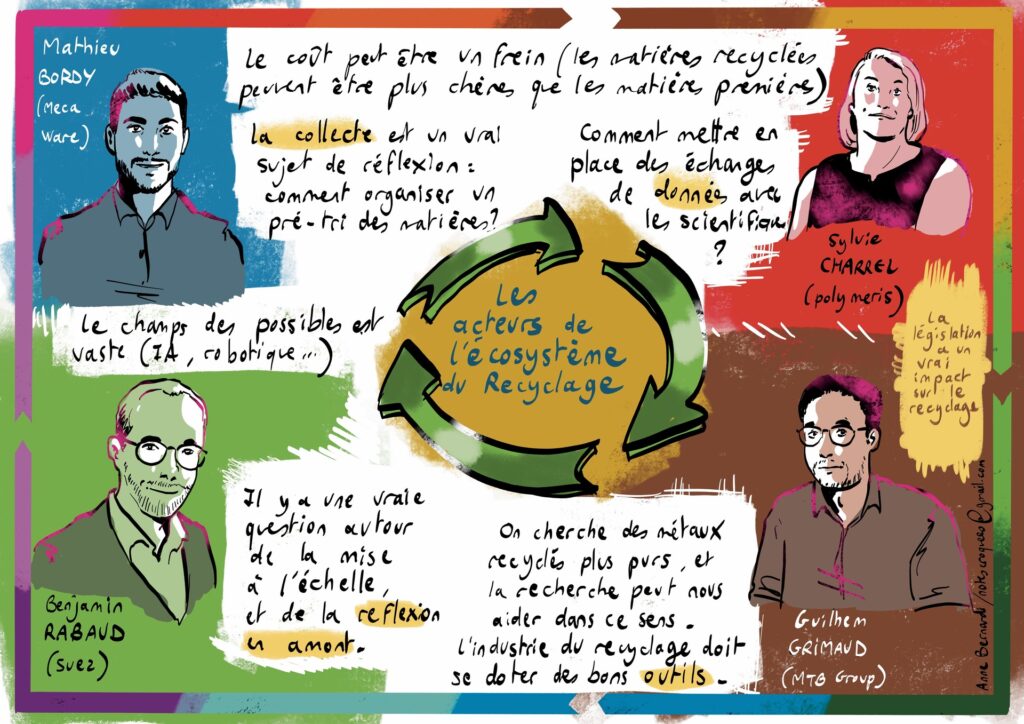 Mathieu
BORDY
(Meca
Ware)
Le coût peut être un frein (les matières recyclées
peuvent être plus chères que les matière premières)
La collecte est un vrai
sujet de réflexion :
comment organiser un
pré-tri des matières?
Comment mettre en
place des échanges
de données avec
les scientifique
?
Sylvie
CHARREL
(polymeris)
Le champs des possibles est
vaste (IA, robotique...)
Les
acteurs de
l'écosystème
du Recyclage
La
législation
a un
vrai
impact
sur le
recyclage
Benjamin
RABAUD
(Suez)
Il y a une vraie
question autour
de la mise
à l'échelle,
et de la reflexion
en amont.
On cherche des métaux
recyclés plus purs, et
la recherche peut nous
aider dans ce sens.
L'industrie du recyclage doit
se doter des bons outils.
Guilhem
GRIMAUD
(MTB Group)
Anne Bernardi /notescroquees@gmail.com